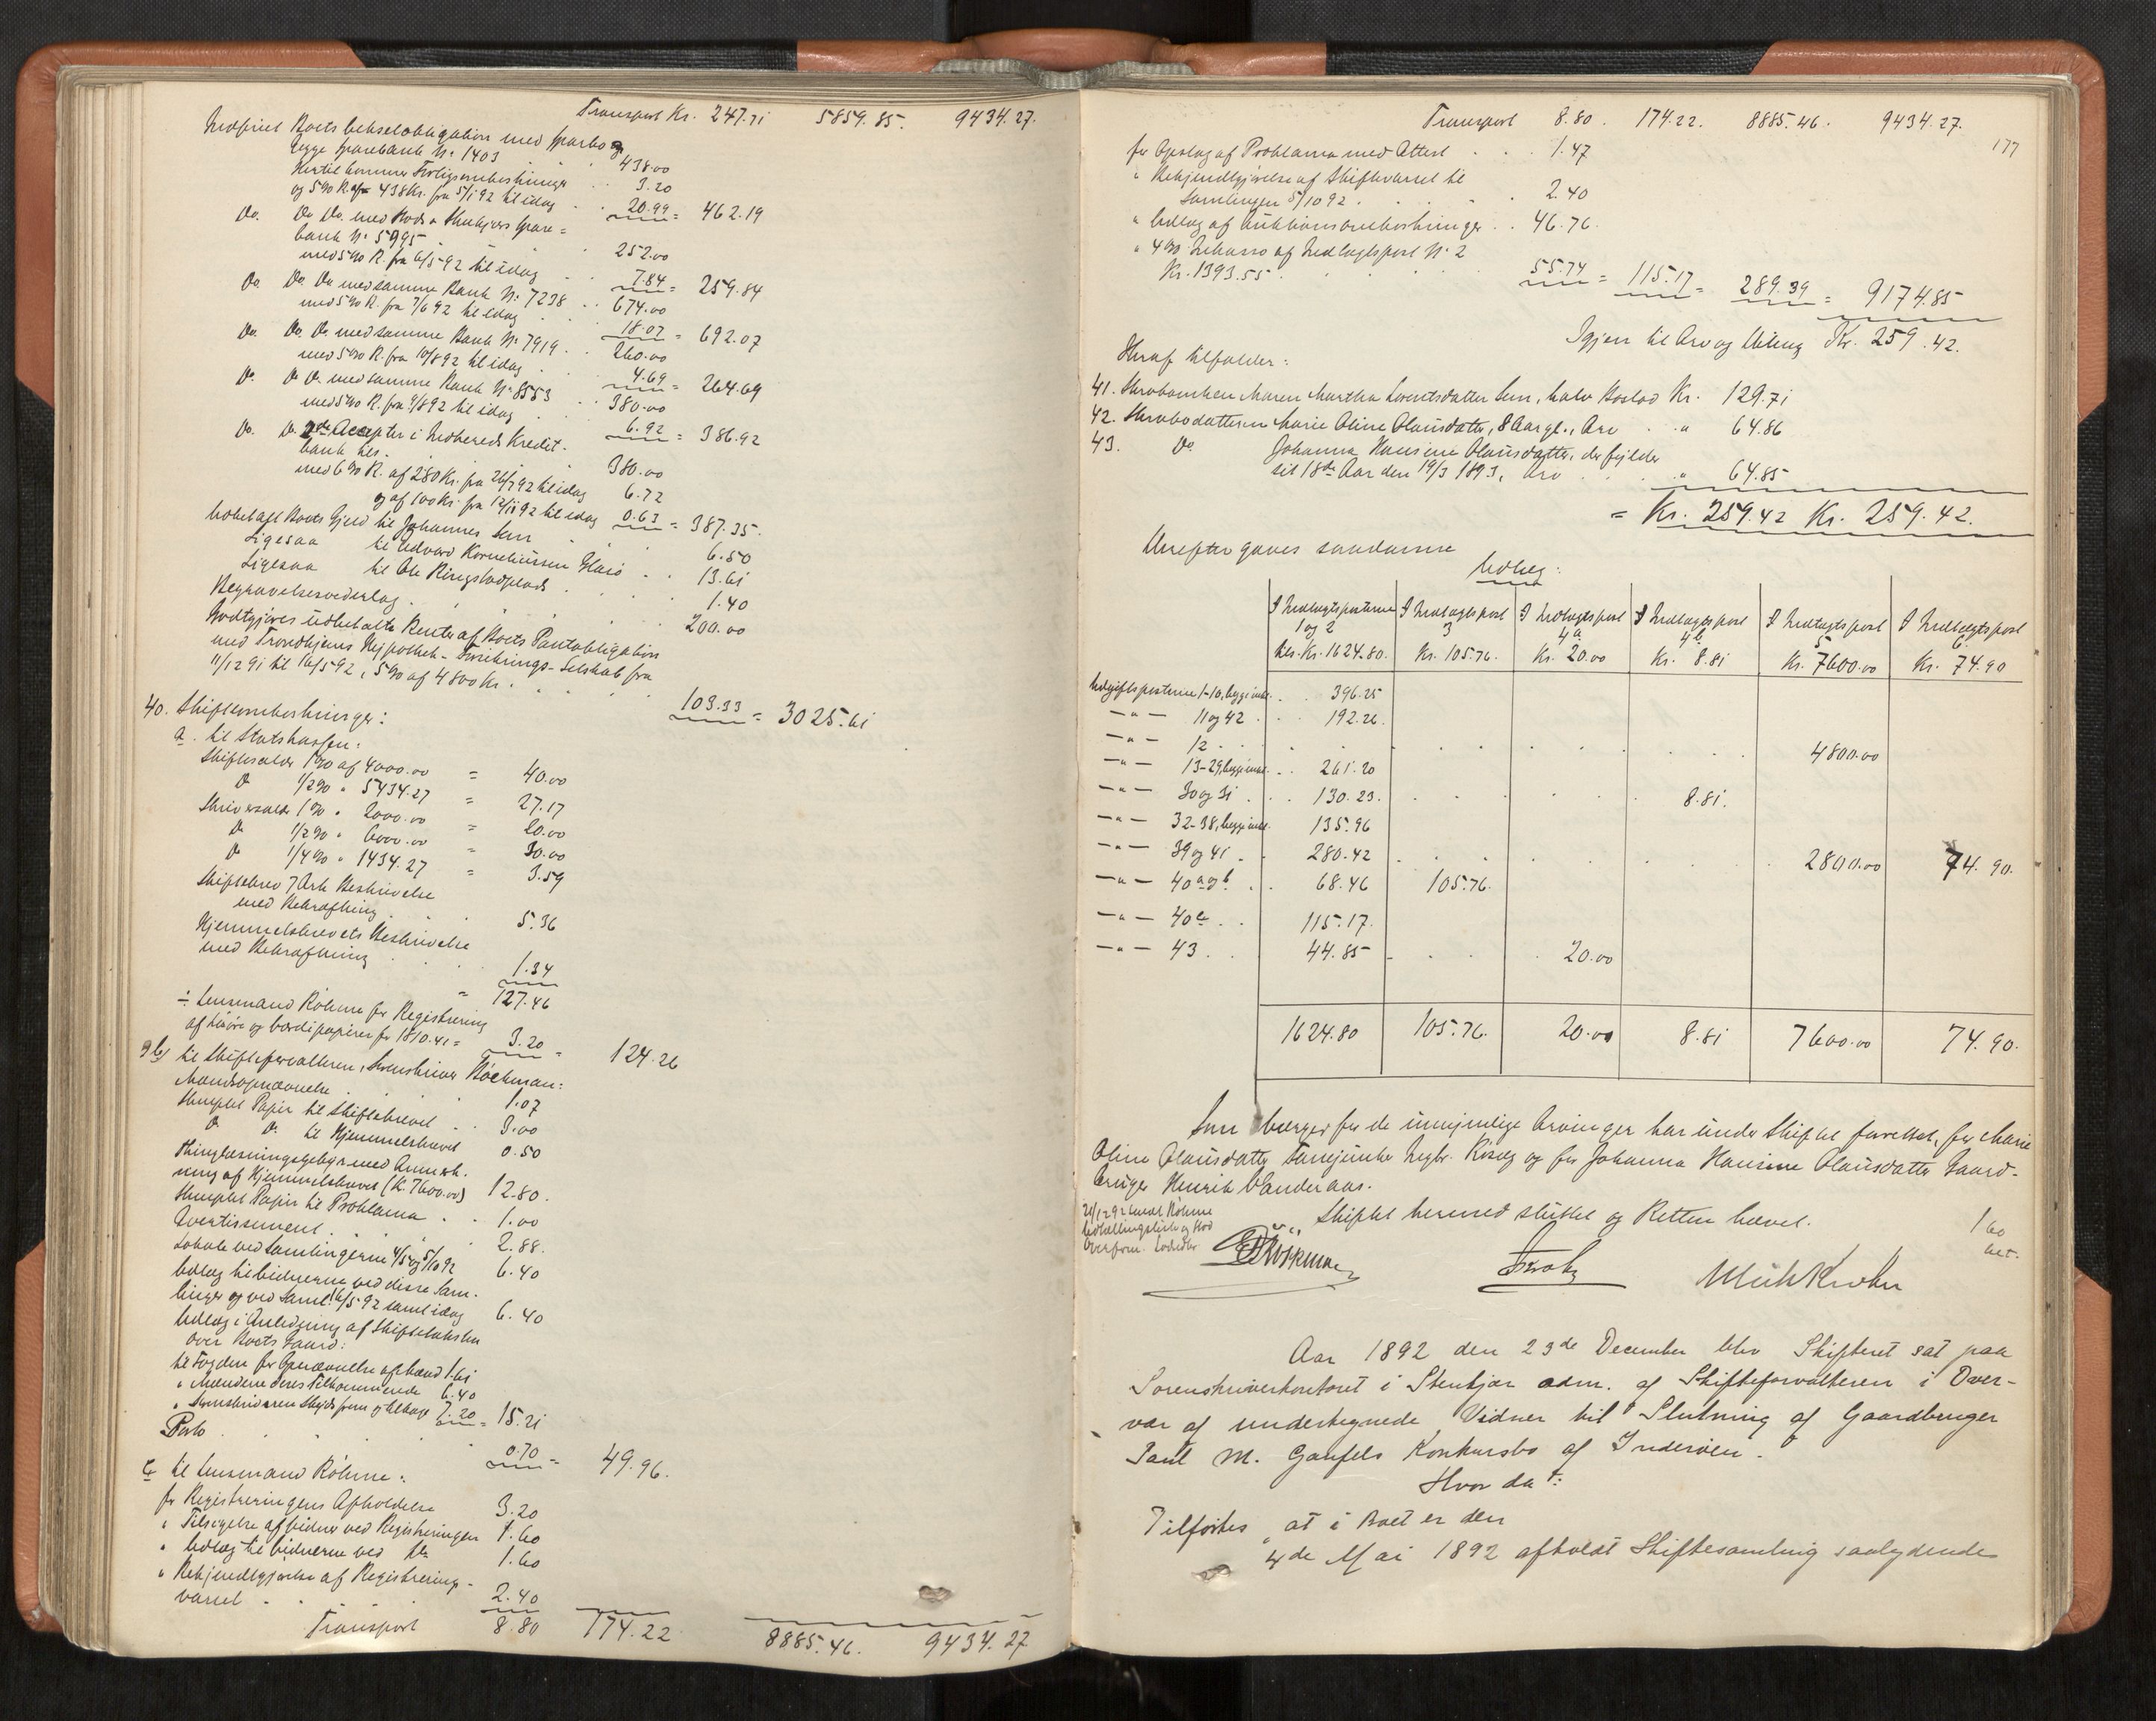 Transport Kr. 247.71 5859.85. 9434.27.
Indfriet Boets Vekselobligation med Sparbo
egge Sparebank No 1403 438.00
Hertil kommer Forligsomkostninger 3.20
og 5% R. af 438 Kr. fra 5/1 92 til idag 20.99 = 462.19
Do. Do Do. med Beds
bank No 5995 252.00
med 5% R. fra 6/5 92 til idag 7.84 = 259.84
Do. Do. Do med samme Bank No 7238 674.00
med 5% R. fra 7/6 92 til idag 18.07 = 692.07
Do. Do. Do med samme Bank No 7919 260.00
med 5% R. fra 10/8 92 til idag 4.69 = 264.69
Do. Do Do. med samme Bank No 8553 380.00
med 5% R. fra 9/8 92 til idag 6.92 = 386.92
Do. Do. 2de Accepter i Indhereds Kredit-
bank tils. 380.00
med 6% R. af 280 Kr. fra 26/7 92 til idag 6.72
og af 100 Kr. fra 12/11 92 til idag 0.63 = 387.35.
Udbetalt Boets Gjeld til Johannes Sem 6.50
Ligesaa til Edvard Korneliussen 13.61
Ligesaa til Ole Ringstadplads 1.40
Begravelsesvederlag 200.00
Godtgjøres udbetalte Renter af Boets Pantobligation
med Trondhjems Hypothek-Forsikrings-Selskab fra
11/12 91 til 16/5 92, 5% af 4800 Kr. 103.33 = 3025.61
40. Skifteomkostninger:
a. til Statskassen:
Skiftesalær 1% af 4000.00 = 40.00
Do 1/2% " 5434.27 = 27.17
Skriversalær 1% " 2000.00 = 20.00
Do 1/2% " 6000.00 = 30.00
Do 1/4% " 1434.27 = 3.59
Skiftebrev 7 Ark Beskrivelse
med Bekræftning 5.36
Hjemmelsbrevets Beskrivelse
med Bekræftning 1.34
= 127.46
÷ Lensmand Röhme for Registrering
af Løsøre og Værdipapirer for 1810.41 = 3.20 = 124.26
b) til Skifteforvalteren, Sorenskriver Böckman:
Mandsopnævnelse 1.07
Stemplet Papir til Skiftebrevet 3.00
Do Do. til Hjemmelsbrevet 0.50
Thinglæsningsgebyr med Anmerk-
ning af Hjemmelsbrevet (K. 7600.00) 12.80.
Stemplet Papir til Proklama 1.00
Avertissement 2.88.
Lokale ved Samlingerne 4/5 og 5/10 92 6.40
Udlæg til Vidnerne ved disse Sam-
linger og ved Saml. 16/5 92 samt idag 6.40
Udlæg i Anledning af Skiftetaksten
over Boets Gaard:
til Fogden for Opnævnelse af Mænd 1.61
" Mændene deres Tilkommende 6.40
" Sorenskriveren Skyds frem og tilbage 7.20 = 15.21
Porto 0.70 = 49.96.
c til Lensmand Röhme:
for Registreringens Afholdelse 3.20
" Tilsigelse af Vidner ved Registreringen 1.60
" Udlæg til Vidnerne ved Do 1.60
" Bekjendtgjørelse af Registrerings-
varsel 2.40
Transport 8.80 174.22 8885.46. 9434.27
Transport 8.80. 174.22. 8885.46. 9434.27.
177
for Opslag af Proklama med Attest 1.47
" Bekjendtgjørelse af Skiftevarsel til
Samlingen 5/10 92. 2.40
" Udlæg af Auktionsomkostninger 46.76.
" 4% Inkasso af Indtægtspost No 2
Kr. 1393.55. 55.74 = 115.17 = 289.39 = 9174.85
Igjen til Arv og Deling Kr. 259.42.
Heraf tilfalder:
41. Stervboenken Maren Martha Lorentsdatter Sem, halv Boslod Kr. 129.71
42. Stervbodatteren Marie Oline Olausdatter, 8 Aar gl., Arv " 64.86
43. Do Johanna Hansine Olausdatter, der fylder
sit 18de Aar den 19/3 1893, Arv " 64.85
= Kr. 259.42 Kr. 259.42.
Derefter gaves saadanne
Udlæg:
I Indtægtsposterne 1 og 2 tils. Kr. 1624.80. I Indtægtspost 3 Kr. 105.76. I Indtægtspost 4a Kr. 20.00 I Indtægtspost 4b Kr. 8.81 I Indtægtspost 5 Kr. 7600.00 I Indtægtspost 6. Kr. 74.90
Udgiftsposterne 1-10, begge inkl. 396.25
-"- 11 og 42 192.26.
-"- 12 4800.00
-"- 13-29, begge inkl. 261.20
-"- 30 og 31 130.23. 8.81.
-"- 32-38, begge inkl. 135.96
-"- 39 og 41 280.42 2800.00 74.90.
-"- 40 a og b 68.46 105.76.
-"- 40 c 115.17.
-"- 43 44.85 20.00
1624.80 105.76. 20.00 8.81 7600.00 74.90.
Som Værger for de umyndige Arvinger har under Skiftet fungeret, for Marie
Oline Olausdatter Ingbr. Roseg og for Johanna Hansine Olausdatter Gaard-
bruger Henrik Vanderaas.
Skiftet hermed sluttet og Retten hævet.
1 60
bet.
Aar 1892 den 23de December blev Skifteret sat paa
Sorenskriverkontoret i Stenkjær adm. af Skifteforvalteren i Over-
vær af undertegnede Vidner til Slutning af Gaardbruger
Paul M. Gaufels Konkursbo af Inderøen.
Hvor da:
Tilførtes, at i Boet er den
4de Mai 1892 afholdt Skiftesamling saalydende